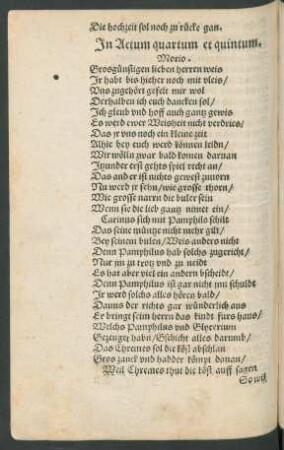 Die hochzeit sol noch zu rücke gan.
In Actum quartum et quintum.
Morio.
Grosgünstigen lieben herren weis
Ir habt bis hieher noch mit vleis/
Vns zugehört gefelt mir wol
Derhalben ich euch dancken sol/
Ich gleub vnd hoff auch gantz gewis
Es werd ewer Weisheit nicht verdries/
Das jr vns noch ein kleine zeit
Alhie bey euch werd können leidn/
Wir wölln zwar bald komen daruan
Itzunder erst gehts spiel recht an/
Das ander ist nichts gewest zuuorn
Nu werd jr sehn/wie grosse thorn/
Wie grosse narrn die buler sein
Wenn sie die lieb gantz nimet ein/
Carinus sich mit Pamphilo schilt
Das seine müntze nicht mehr gilt/
Bey seinem bulen/Weis anders nicht
Denn Pamphilus hab solchs zugericht/
Nur jm zu trotz vnd zu neidt
Es hat aber viel ein andern bscheidt/
Denn Pamphilus ist gar nicht jm schuldt
Ir werd solchs alles hören bald/
Dauus der richts gar wünderlich aus
Er bringt seim herrn das kindt fürs haus/
Welchs Pamphilus vnd Glycerium
Gezeuget habn/Gschicht alles darumb/
Das Chremes sol die köst abschlan
Gros zanck vnd hadder kömpt douan/
Weil Chremes thut die köst auff sagen
So wil